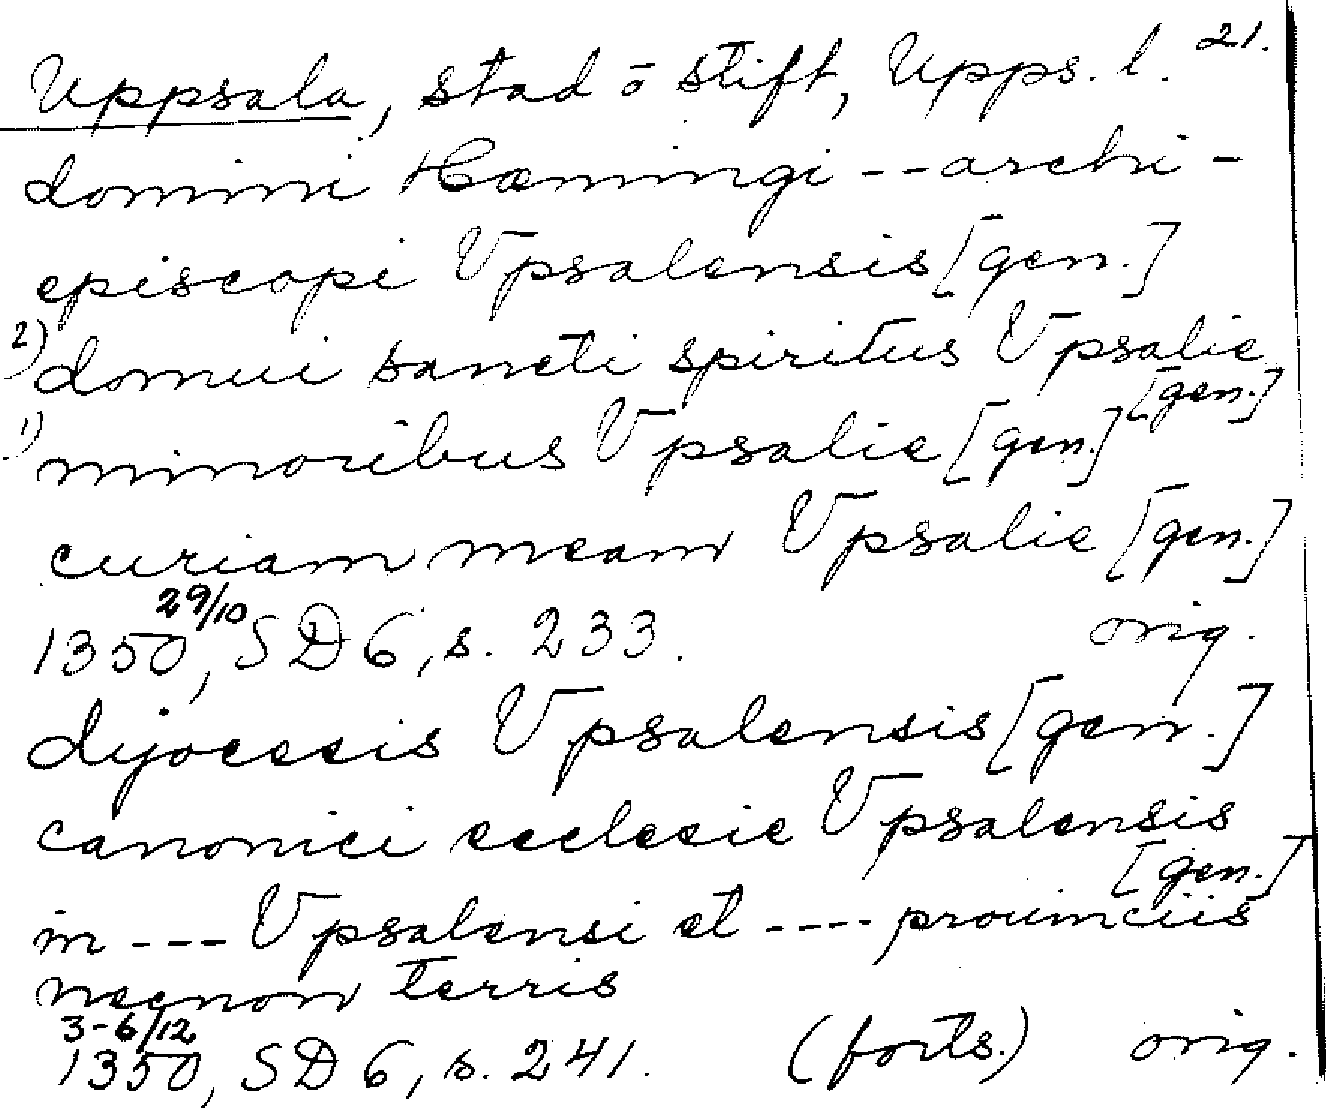 Uppsala, stad o stift, Upps. l. 21.
domini Hæmingi -- archi-
episcopi Vpsalensis [gen.]
2) domui sancti spiritus Vpsalie [gen.]
1) minoribus Vpsalie [gen.]
curiam meam Vpsalie [gen.]
29/10
1350, SD 6, s. 233. orig.
dyocesis Vpsalensis [gen.]
canonici ecclesie Vpsalensis [gen.]
in --- Vpsalensi et ---- prouinciis
necnon terris
3-6/12
1350, SD 6, s. 241. (forts.) orig.